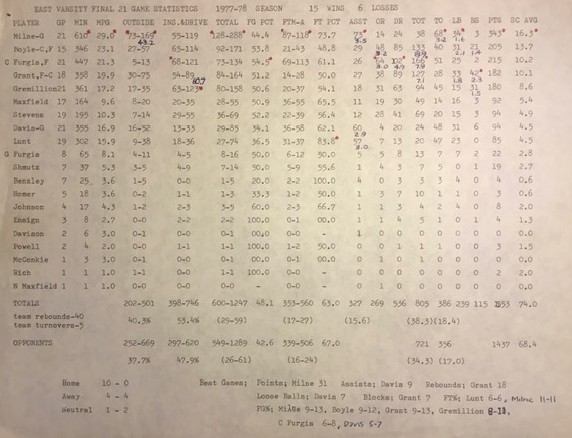 EAST VARSITY FINAL 21 GAME STATISTICS 1977-78 SEASON 15 WINS 6 LOSSES
PLAYER GP MIN MPG OUTSIDE INS.&DRIVE TOTAL FG PCT FTM-A FT PCT ASST OR DR TOT TO LB BS PTS SC AVG
Milne-G 21 610 29.0 73-169 55-119 128-288 44.4 87-118 73.7 73 14 24 38 68 34 3 343 16.3
43.2 3.5 3.2 1.6
Boyle-C,F 15 346 23.1 27-57 65-114 92-171 53.8 21-43 48.8 29 48 85 133 40 31 21 205 13.7
C Furgis,F 21 447 21.3 5-13 68-121 73-134 54.5 69-113 61.1 26 64 102 166 51 25 2 215 10.2
Grant,F-C 18 358 19.9 30-75 54-89 84-164 51.2 14-28 50.0 27 38 89 127 28 33 42 182 10.1
Gremillion 21 361 17.2 17-35 63-123 80-158 50.6 20-37 54.1 18 31 63 94 45 15 31 180 8.6
Maxfield 17 164 9.6 8-20 20-35 28-55 50.9 36-55 65.5 11 19 30 49 14 16 3 92 5.4
Stevens 19 195 10.3 7-14 29-55 36-69 52.2 22-39 56.4 12 28 41 69 20 15 3 94 4.9
Davis-G 21 355 16.9 16-52 13-33 29-85 34.1 36-58 62.1 60 4 20 24 48 31 6 94 4.5
Lunt 19 302 15.9 9-38 18-36 27-74 36.5 31-37 83.8 57 7 13 20 47 23 0 85 4.5
G Furgis 8 65 8.1 4-11 4-5 8-16 50.0 6-12 50.0 5 5 8 13 7 7 2 22 2.8
Shmutz 7 37 5.3 3-5 4-9 7-14 50.0 5-9 55.6 1 4 3 7 5 0 1 19 2.7
Benzley 7 25 3.6 1-5 0-0 1-5 20.0 2-2 100.0 4 0 3 3 4 0 4 0.6
Homer 5 18 3.6 0-2 1-1 1-3 33.3 1-2 50.0 1 3 7 10 1 1 0 3 0.6
Johnson 4 17 4.3 1-2 2-3 3-5 60.0 2-3 66.7 1 1 3 4 2 4 0 8 2.0
Ensign 3 8 2.7 0-0 2-2 2-2 100.0 0-1 00.0 1 1 4 5 1 0 1 4 1.3
Davison 2 6 3.0 0-1 0-0 0-1 00.0 0-0 - 1 0 0 0 0 0 0 0 0.0
Powell 2 4 2.0 0-0 1-1 1-1 100.0 1-2 50.0 0 0 1 1 0 0 3 1.5
McConkie 1 3 3.0 0-1 0-0 0-1 00.0 0-1 00.0 0 0 1 1 0 0 0 0 0.0
Rich 1 1 1.0 1-1 0-0 1-1 100.0 0-0 - 0 0 0 0 0 0 0 2 2.0
N Maxfield 1 1 1.0 0-0 0-0 0-0 - 0-0 - 0 0 0 0 0 0 0 0 0.0
TOTALS 202-501 398-746 600-1247 48.1 353-560 63.0 327 269 536 805 386 239 115 1553 74.0
team rebounds-40 40.3% 53.4% (29-59) (17-27) (15.6) (38.3)(18.4)
team turnovers-5
OPPONENTS 252-669 297-620 549-1289 42.6 339-506 67.0 721 356 1437 68.4
37.7% 47.9% (26-61) (16-24) (34.3) (17.0)
Home 10 - 0 Best Games; Points; Milne 31 Assists; Davis 9 Rebounds; Grant 18
Away 4 - 4 Loose Balls; Davis 7 Blocks; Grant 7 FT%; Lunt 6-6, Milne 11-11
Neutral 1 - 2 FG%; Milne 9-13, Boyle 9-12, Grant 9-13, Gremillion
C Furgis 6-8, Davis 5-7